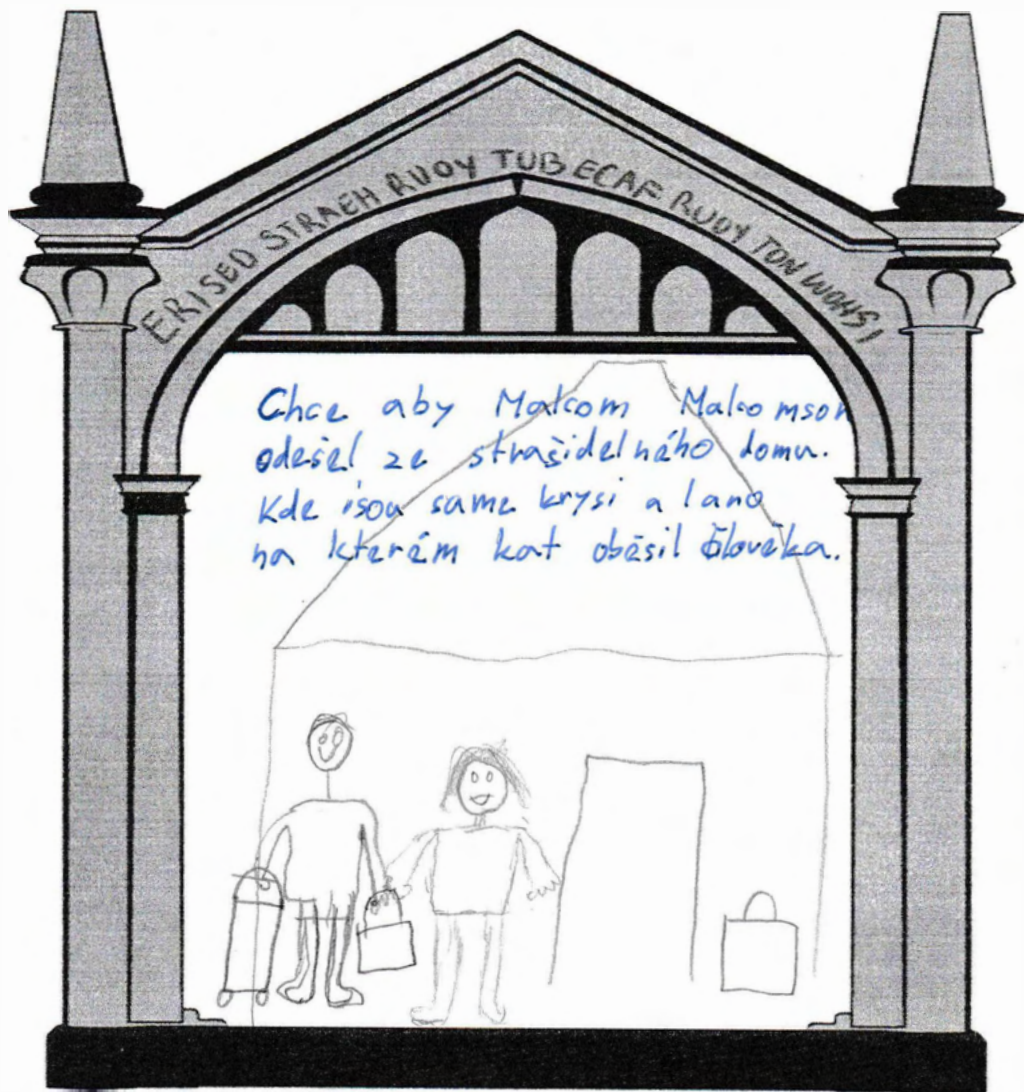 ERISED STRAEH RUOY TUB ECAF RUOY TON WOHSI
Chce aby Malcom Malcomson
odešel ze strašidelného domu.
Kde jsou same krysi a lano
na kterém kat oběsil člověka.